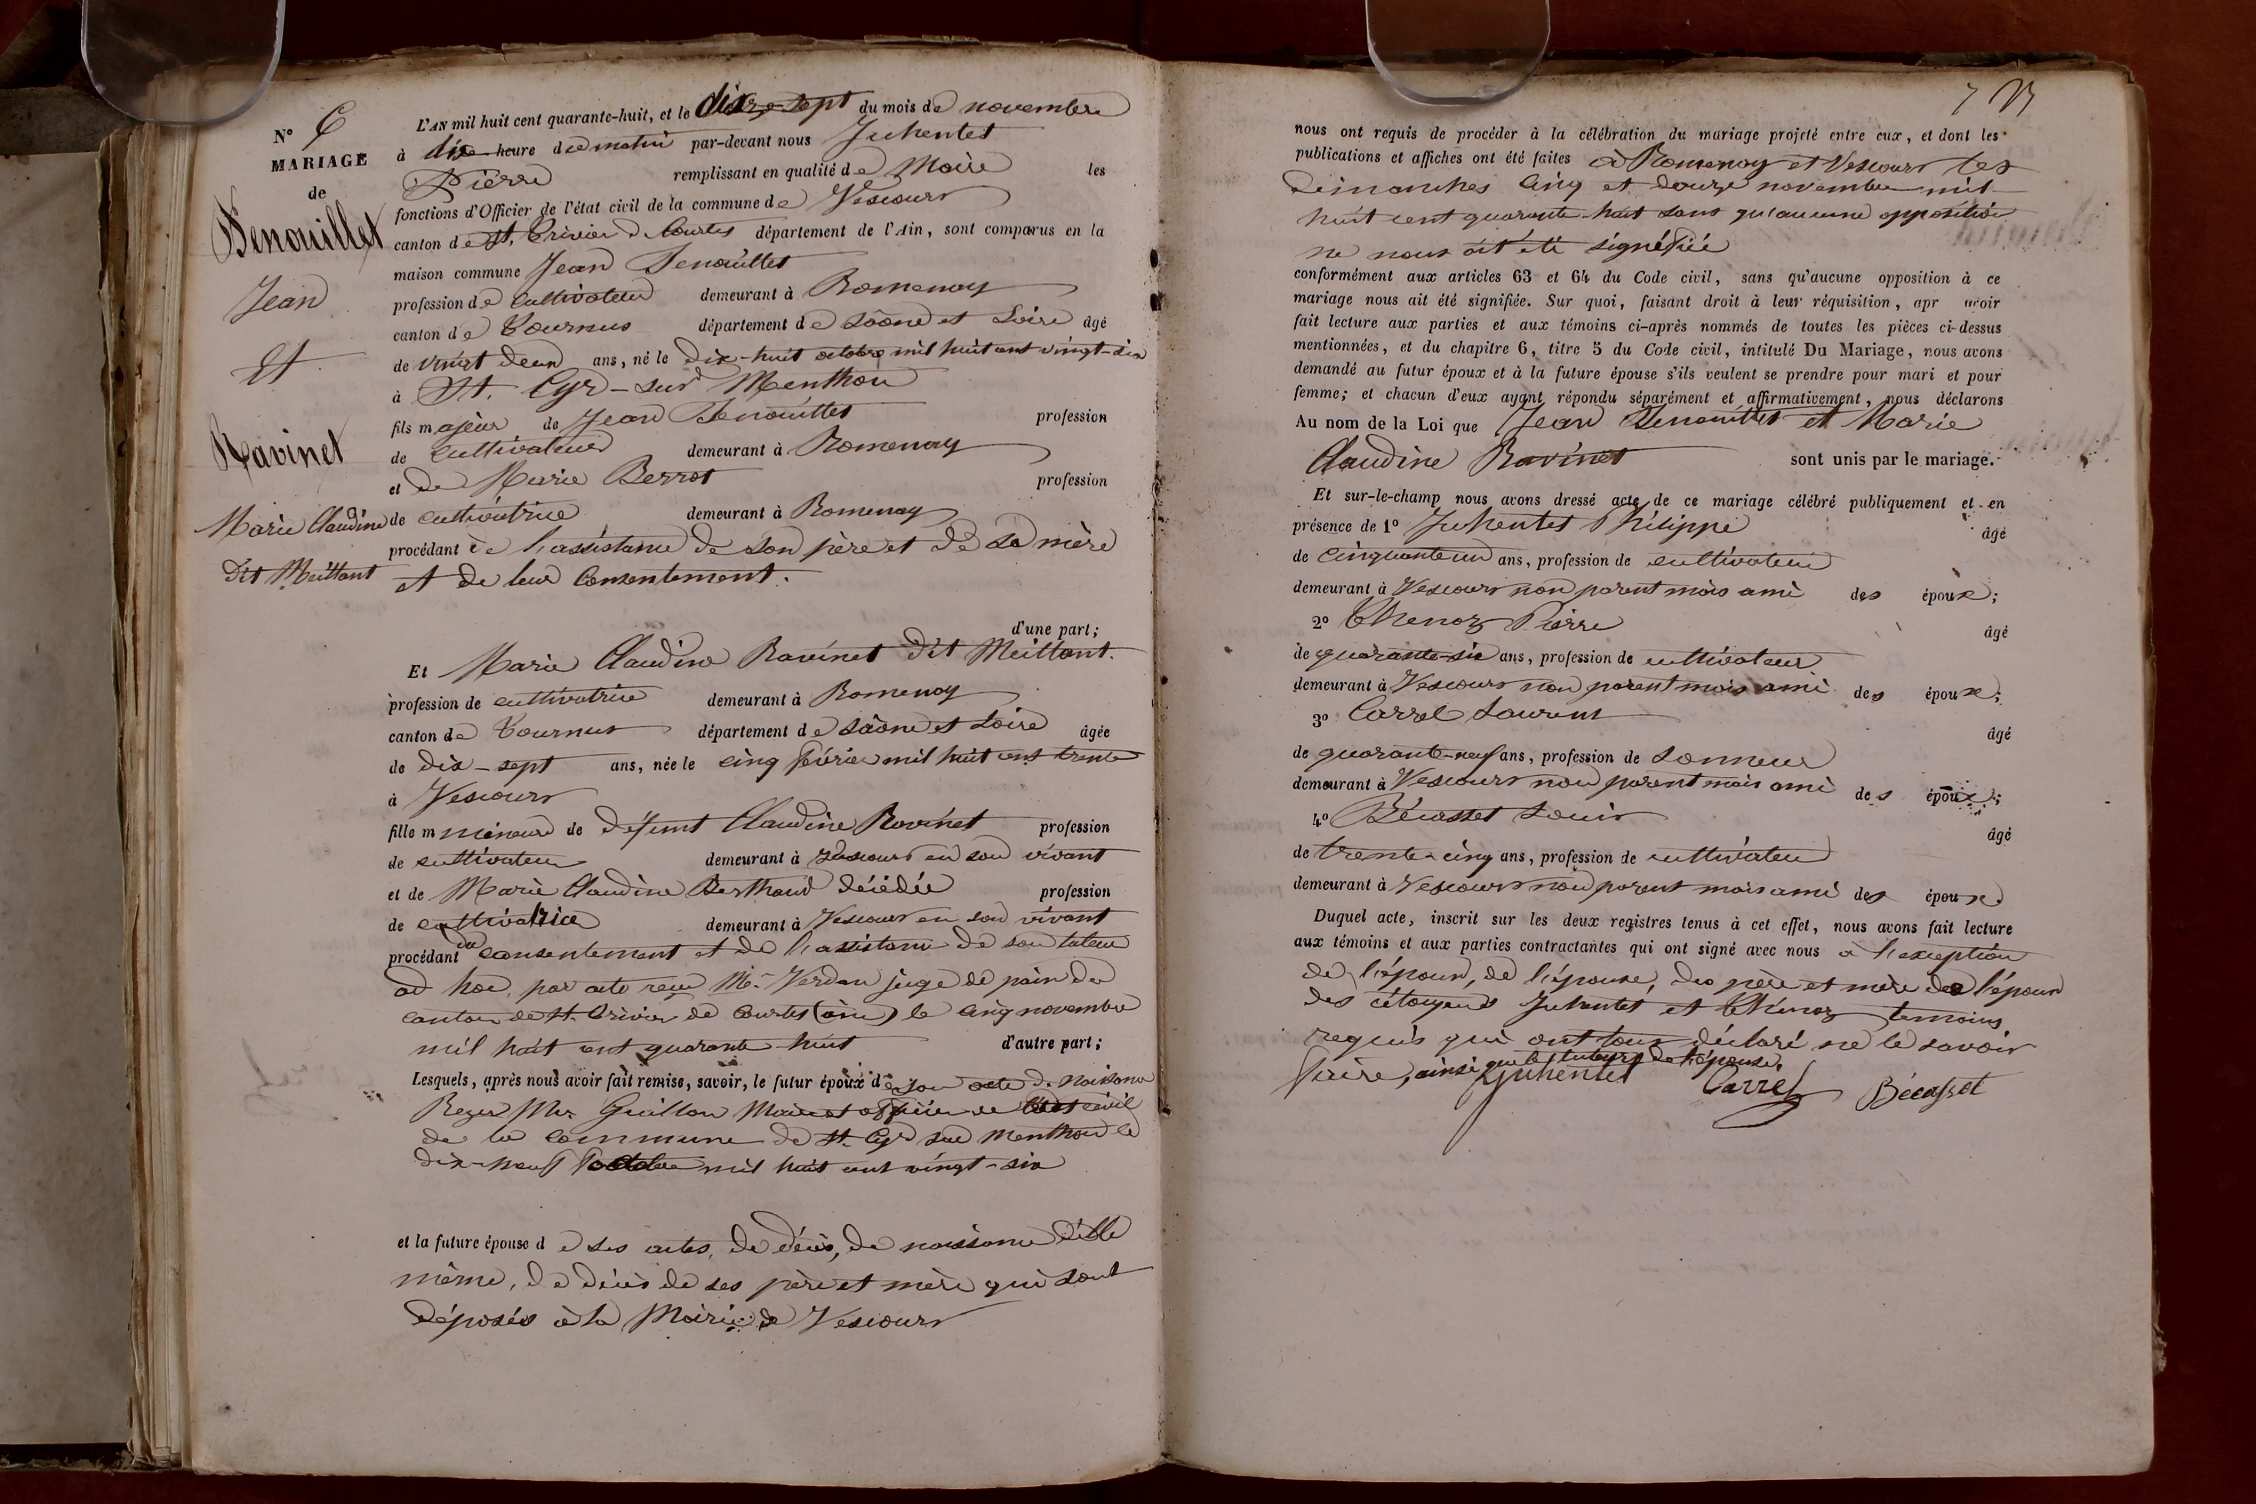 N° 6
MARIAGE
de
Benouillet
Jean
Et
Ravinet
Marie Claudine
dit Meillant
L'AN mil huit cent quarante-huit, et le dix-sept du mois de novembre
à dix heure du matin par-devant nous Juhentet
Pierre remplissant en qualité de Maire les
fonctions d'Officier de l'état civil de la commune de Vescours
canton de St. Trivier de Courtes département de l'Ain, sont comparus en la
maison commune Jean Benouillet
profession de cultivateur demeurant à Romenay
canton de Tournus département de Saône et Loire âgé
de vingt deux ans, né le dix-huit octobre mil huit cent vingt-six
à St. Cyr-sur Menthon
fils majeur de Jean Benouillet profession
de cultivateur demeurant à Romenay
et de Marie Berrot profession
de cultivatrice demeurant à Romenay
procédant de l'assistance de son père et de sa mère
et de leur consentement.
d'une part;
Et Marie Claudine Ravinet dit Meillant.
profession de cultivatrice demeurant à Romenay
canton de Tournus département de Saône et Loire âgée
de dix-sept ans, née le cinq février mil huit cent trente
à Vescours
fille mineure de défunt Claudine Ravinet profession
de cultivateur demeurant à Vescours en son vivant
et de Marie Claudine Berthaud décédée profession
de cultivatrice demeurant à Vescours en son vivant
procédant du consentement et de l'assistance de son tuteur
ad hoc, par acte reçu Me. Verdan juge de paix du
canton de St. Trivier de Courtes (ain) le cinq novembre
mil huit cent quarante huit d'autre part;
Lesquels, après nous avoir fait remise, savoir, le futur époux de son acte de naissance
Reçu Mr. Guillon Maire et officier de l'état civil
de la commune de St. Cyr sur Menthon le
dix-neuf octobre mil huit cent vingt-six
et la future épouse de ses actes, de décès, de naissance d'elle
même, de décès de ses père et mère qui sont
déposés à la Mairie de Vescours
7
nous ont requis de procéder à la célébration du mariage projeté entre eux, et dont les
publications et affiches ont été faites à Romenay et Vescours les
dimanches cinq et douze novembre mil
huit cent quarante-huit sans qu'aucune opposition
ne nous ait été signéfiée
conformément aux articles 63 et 64 du Code civil, sans qu'aucune opposition à ce
mariage nous ait été signifiée. Sur quoi, faisant droit à leur réquisition, apr avoir
fait lecture aux parties et aux témoins ci-après nommés de toutes les pièces ci-dessus
mentionnées, et du chapitre 6, titre 5 du Code civil, intitulé Du Mariage, nous avons
demandé au futur époux et à la future épouse s'ils veulent se prendre pour mari et pour
femme; et chacun d'eux ayant répondu séparément et affirmativement, nous déclarons
Au nom de la Loi que Jean Benouillet et Marie
Claudine Ravinet sont unis par le mariage.
Et sur-le-champ nous avons dressé acte de ce mariage célébré publiquement et en
présence de 1° Juhentet Philippe âgé
de cinquante un ans, profession de cultivateur
demeurant à Vescours non parent mais ami des époux;
2° Thenoz Pierre âgé
de quarante-six ans, profession de cultivateur
demeurant à Vescours non parent mais ami des époux;
3° Carrel Laurent âgé
de quarante-neuf ans, profession de sonneur
demeurant à Vescours non parent mais ami des époux;
4° Bécasset Louis âgé
de trente-cinq ans, profession de cultivateur
demeurant à Vescours non parent mais ami des époux
Duquel acte, inscrit sur les deux registres tenus à cet effet, nous avons fait lecture
aux témoins et aux parties contractantes qui ont signé avec nous à l'exception
de l'époux, de l'épouse, des père et mère de l'époux
des citoyens Juhentet et Thénoz temoins
requis qui ont tous déclaré ne le savoir
faire, ainsi que le tuteur de l'épouse.
Juhentet Carrel Bécasset